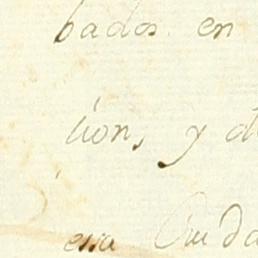 bados. en
cion, y d
essa Ciuda